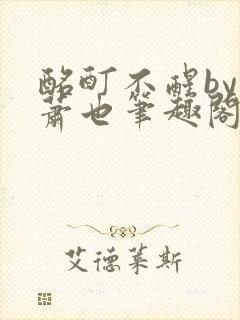 酩酊不醒by
萧也笔趣阁
艾德莱斯